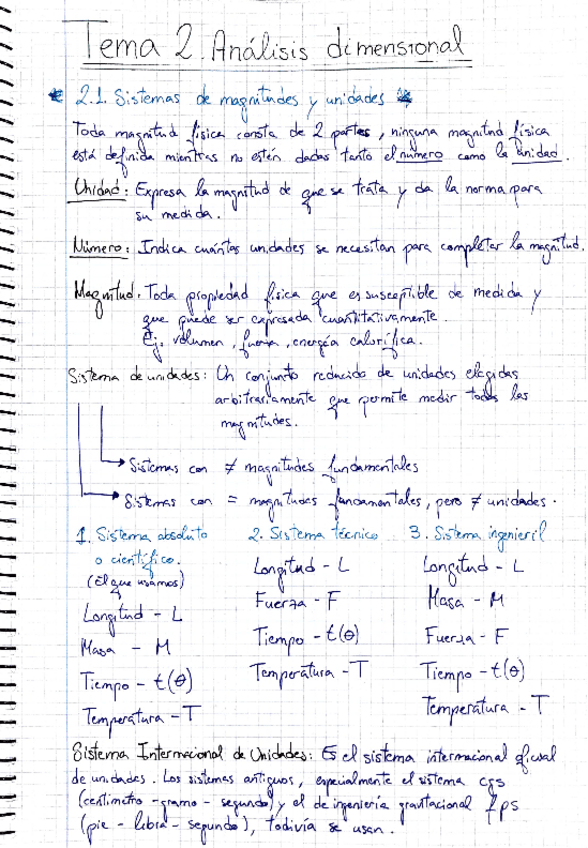 Tema 2. Análisis dimensional
2.1. Sistemas de magnitudes y unidades
Toda magnitud física consta de 2 partes, ninguna magnitud física
está definida mientras no estén dadas tanto el número como la unidad.
Unidad: Expresa la magnitud de que se trata y da la norma para
su medida.
Número: Indica cuántas unidades se necesitan para completar la magnitud.
Magnitud: Toda propiedad física que es susceptible de medida y
que puede ser expresada cuantitativamente.
Ej. volumen, fuerza, energía calorífica.
Sistema de unidades: Un conjunto reducido de unidades elegidas
arbitrariamente que permite medir todas las
magnitudes.
Sistemas con ≠ magnitudes fundamentales
Sistemas con = magnitudes fundamentales, pero ≠ unidades.
1. Sistema absoluto 2. Sistema técnico 3. Sistema ingenieril
o científico. Longitud - L Longitud - L
(El que usamos) Fuerza - F Masa - M
Longitud - L Tiempo - t(θ) Fuerza - F
Masa - M Temperatura - T Tiempo - t(θ)
Tiempo - t(θ) Temperatura - T
Temperatura - T
Sistema Internacional de Unidades: Es el sistema internacional oficial
de unidades. Los sistemas antiguos, especialmente el sistema cgs
(centímetro - gramo - segundo) y el de ingeniería gravitacional fps
(pie - libra - segundo), todivía se usan.